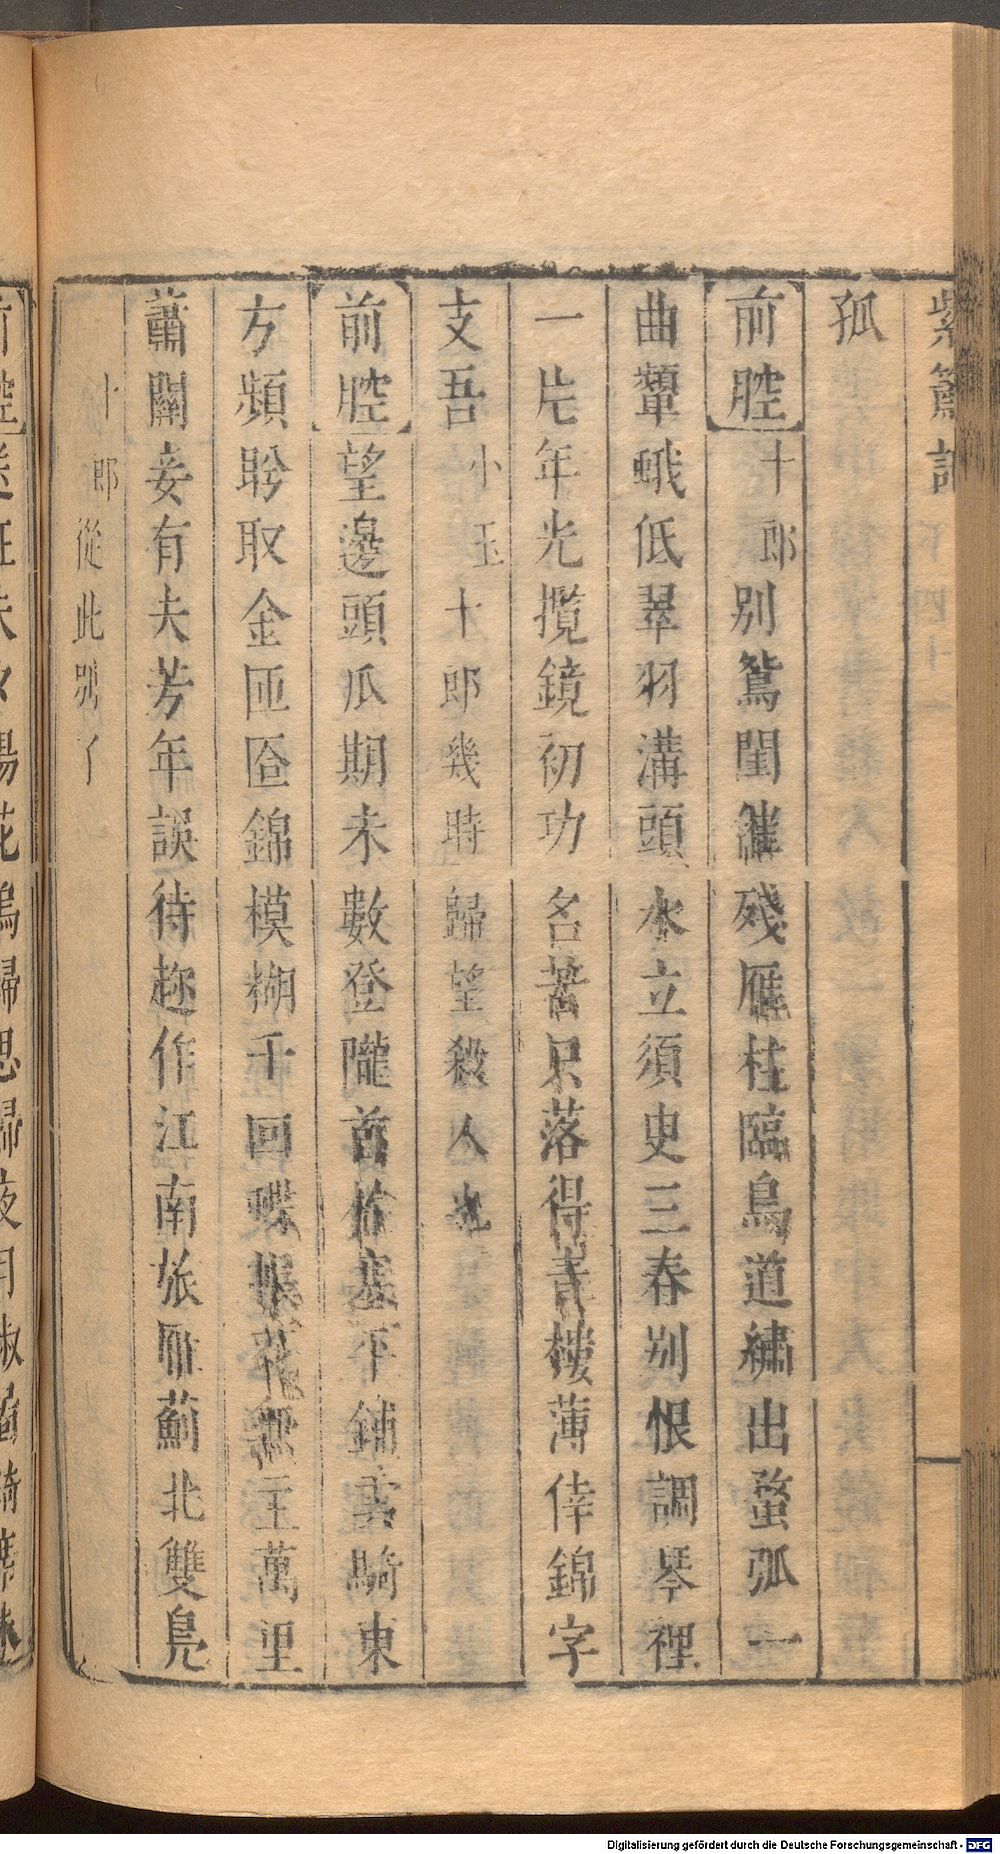 紫簫記
孤
前腔 十郎 別鴛閨催殘雁柱臨鳥道繡出蝥弧一
曲顰蛾低翠羽溝頭水立須臾三春別恨調琴裡
一片年光攬鏡初功名苦只落得青樓薄倖錦字
支吾 小玉 十郎幾時歸望殺人也
前腔 望邊頭瓜期未數登隴首榆塞平鋪雲騎東
方頻盻取金匝匼錦模糊千回蝶帳花無主萬里
蕭關妾有夫芳年誤待趂作江南旅雁薊北雙鳧
十郎 從此別了
Digitalisierung gefördert durch die Deutsche Forschungsgemeinschaft - DFG